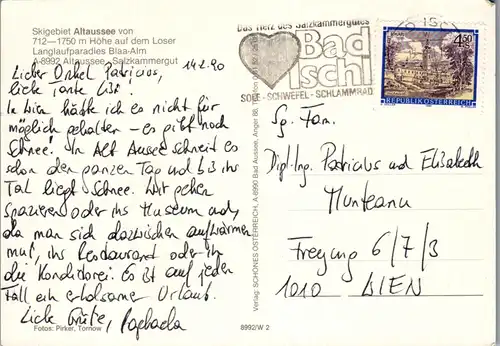 Skigebiet Altaussee von
712—1750 m Höhe auf dem Loser
Langlaufparadies Blaa-Alm
A-8992 Altaussee, Salzkammergut
14.2.90
Lieber Onkel Patricius,
liebe Tante Lisl!
In Wien hätte ich es nicht für
möglich gehalten – es gibt noch
Schnee! In Alt Aussee schneit es
schon den ganzen Tag und bis ins
Tal liegt Schnee. Wir gehen
spazieren oder ins Museum und,
da man sich dazwischen aufwärmen
muß, ins Restaurant oder in
die Konditorei. Es ist auf jeden
Fall ein erholsamer Urlaub.
Liebe Grüße, Raphaela
Fotos: Pirker, Tornow
8992/W 2
Verlag: SCHÖNES ÖSTERREICH, A-8990 Bad Aussee, Anger 88,
Das Herz des Salzkammergutes
Bad
Ischl
SOLE - SCHWEFEL - SCHLAMMBAD
4.50
REPUBLIK ÖSTERREICH
Sg. Fam.
Dipl.-Ing. Patricius und Elisabeth
Munteanu
Freyung 6/7/3
1010 WIEN